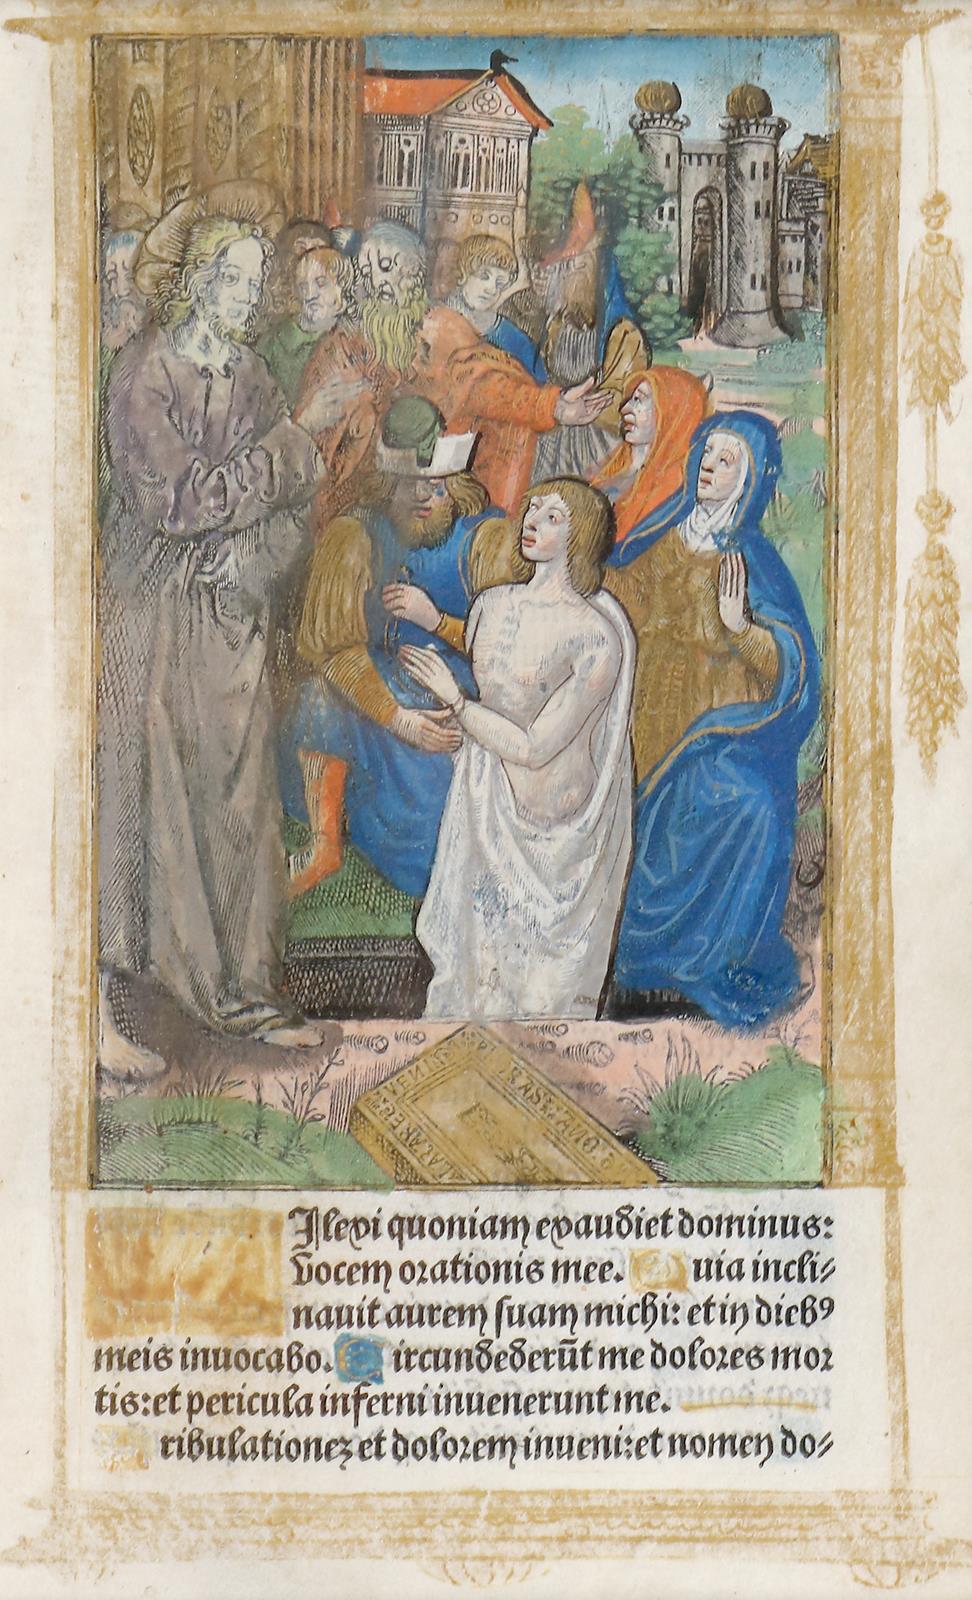 Ilexi quoniam exaudiet dominus:
vocem orationis mee. uia incli⸗
nauit aurem suam michi: et in dieb⁹
meis inuocabo. C ircundederūt me dolores mor
tis: et pericula inferni inuenerunt me.
ribulationez et dolorem inueni: et nomen do⸗